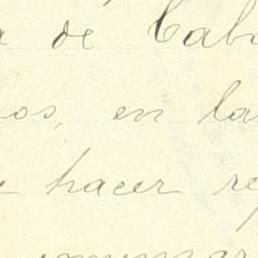 a de Cab
os, en la
hacer re